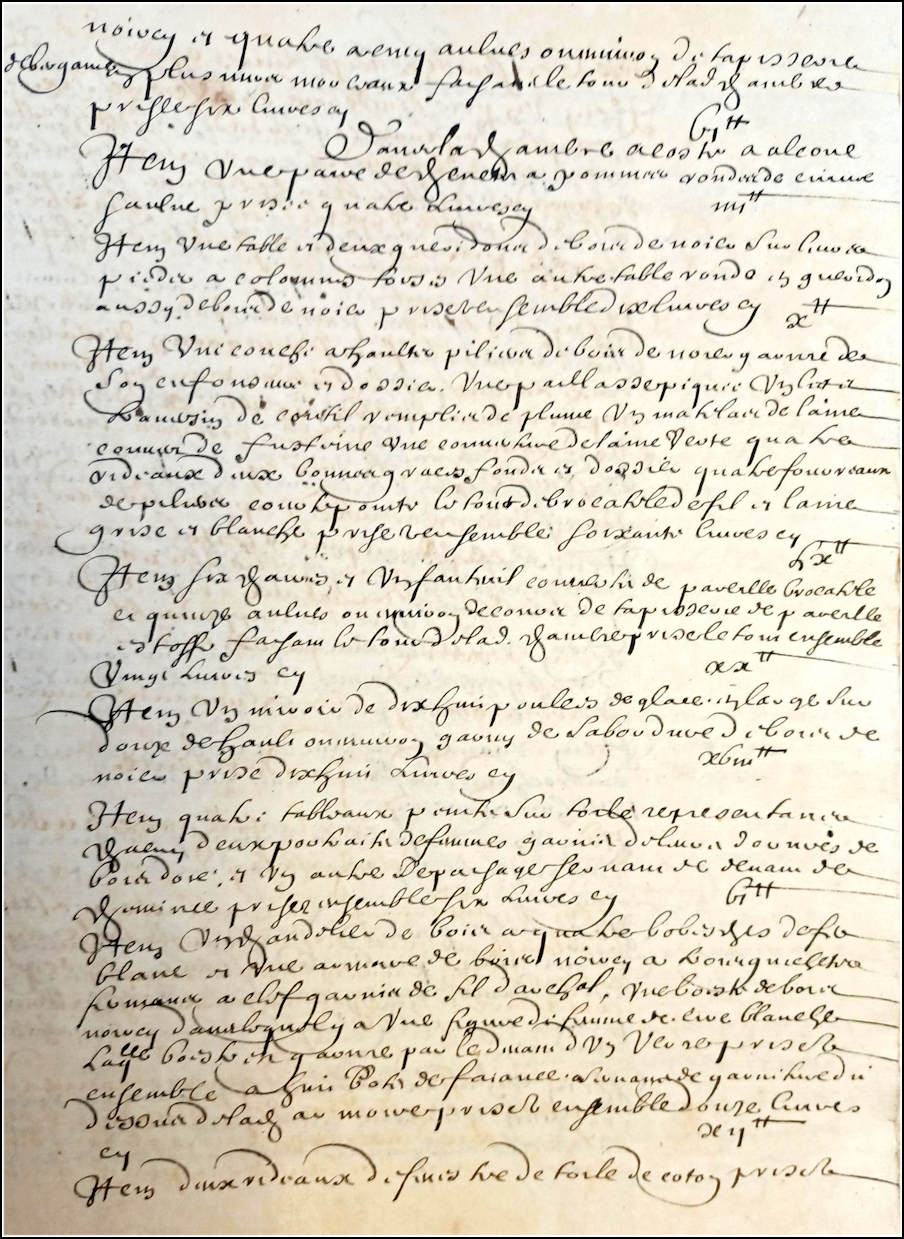 noircy et quatre a cinq aulnes ou environ de tapisserie
de bergame plus autres morceaux faisant le tour de lad chambre
prisé six livres cy
vj tt
Dans la chambre a costé a alcove
Item une paire de chenetz a pommes rondes de cuivre
jaulne prisé quatre livres cy
iiij tt
Item une table et deux gueridons de bois de noier sur leurs
piedz a colonnes torses une autre table ronde et gueridon
aussy de bois de noier prisez ensemble dix livres cy
x tt
Item une couche a haultz pilliers de bois de noier garnie de
son enfonsure et dossier, une paillasse piquée un lict et
traversin de coutil remplis de plume un matelas de laine
couvert de fusteine une couverture de laine verte quatre
rideaux deux bonnes graces fonds et dossier quatre fourreaux
de pilliers courtepointe le tout de brocatelle de fil et laine
grise et blanche prisez ensemble soixante livres cy
lx tt
Item six chaires et un fauteuil couvertz de pareille brocatelle
et quinze aulnes ou environ de cours de tapisserie de pareille
estoffe faisant le tour de lad. chambre prisé le tout ensemble
vingt livres cy
xx tt
Item un miroir de dix huit poulces de glace en large sur
douze de hault ou environ garny de sa bordure de bois de
noier prisé dix huit livres cy
xviij tt
Item quatre tableaux peintz sur toile representans
deux portraitz de femmes garnis de leurs bordures de
bois doré, et un autre de paisage servant de devant de
cheminée prisez ensemble six livres cy
vj tt
Item un chandelier de bois a quatre bobesches de fer
blanc et une armoire de bois noircy a quatre guichetz
fermans a clef garnis de fil d'archal, une boiste de bois
noircy dans laquelle y a une figure de femme de cire blanche
lad boiste garnie par le devant d'un verre prisez
ensemble a huit potz de faiance servans de garniture du
dessus de lad armoire prisez ensemble douze livres
cy
xij tt
Item deux rideaux de fenestre de toile de coton prisez